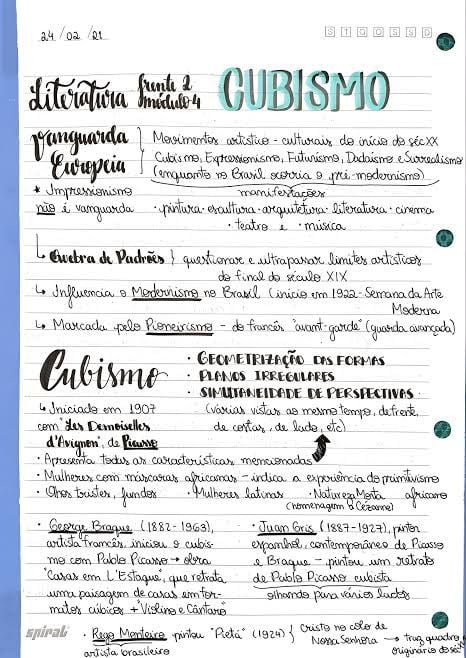 24/02/21
S T Q Q S S D
Literatura frente 2 módulo 4 CUBISMO
Vanguarda Europeia
Movimentos artístico-culturais do início do séc XX
Cubismo, Expressionismo, Futurismo, Dadaísmo e Surrealismo
(enquanto no Brasil ocorria o pré-modernismo)
* Impressionismo
não é vanguarda
manifestações
· pintura · escultura · arquitetura · literatura · cinema
· teatro e · música
↳ Quebra de Padrões } questionar e ultrapassar limites artísticos
do final do século XIX
↳ Influencia o Modernismo no Brasil (início em 1922 - Semana da Arte
Moderna
↳ Marcada pelo Pioneirismo - do francês "avant-garde" (guarda avançada)
Cubismo
· GEOMETRIZAÇÃO DAS FORMAS
· PLANOS IRREGULARES
· SIMULTANEIDADE DE PERSPECTIVAS
(várias vistas ao mesmo tempo, de frente,
de costas, de lado, etc)
↳ Iniciado em 1907
com "Les Demoiselles
d'Avignon", de Picasso
· Apresenta todas as características mencionadas
· Mulheres com máscaras africanas - indica a experiência do primitivismo
africano
· Olhos tristes, fundos · Mulheres latinas · Natureza Morta
(homenagem a Cézanne)
· George Braque (1882-1963),
artista francês, iniciou o cubis-
mo com Pablo Picasso → obra
"Casas em L'Estaque", que retrata
uma paisagem de casas em for-
matos cúbicos + Violino e Cântaro
· Juan Gris (1887-1927), pintor
espanhol, contemporâneo de Picasso
e Braque - pintou um retrato
de Pablo Picasso cubista
olhando para vários lados
· Rego Monteiro pintou "Pietá" (1924) { Cristo no colo de
Nossa Senhora → traz quadro
artista brasileiro
originário do
spiral